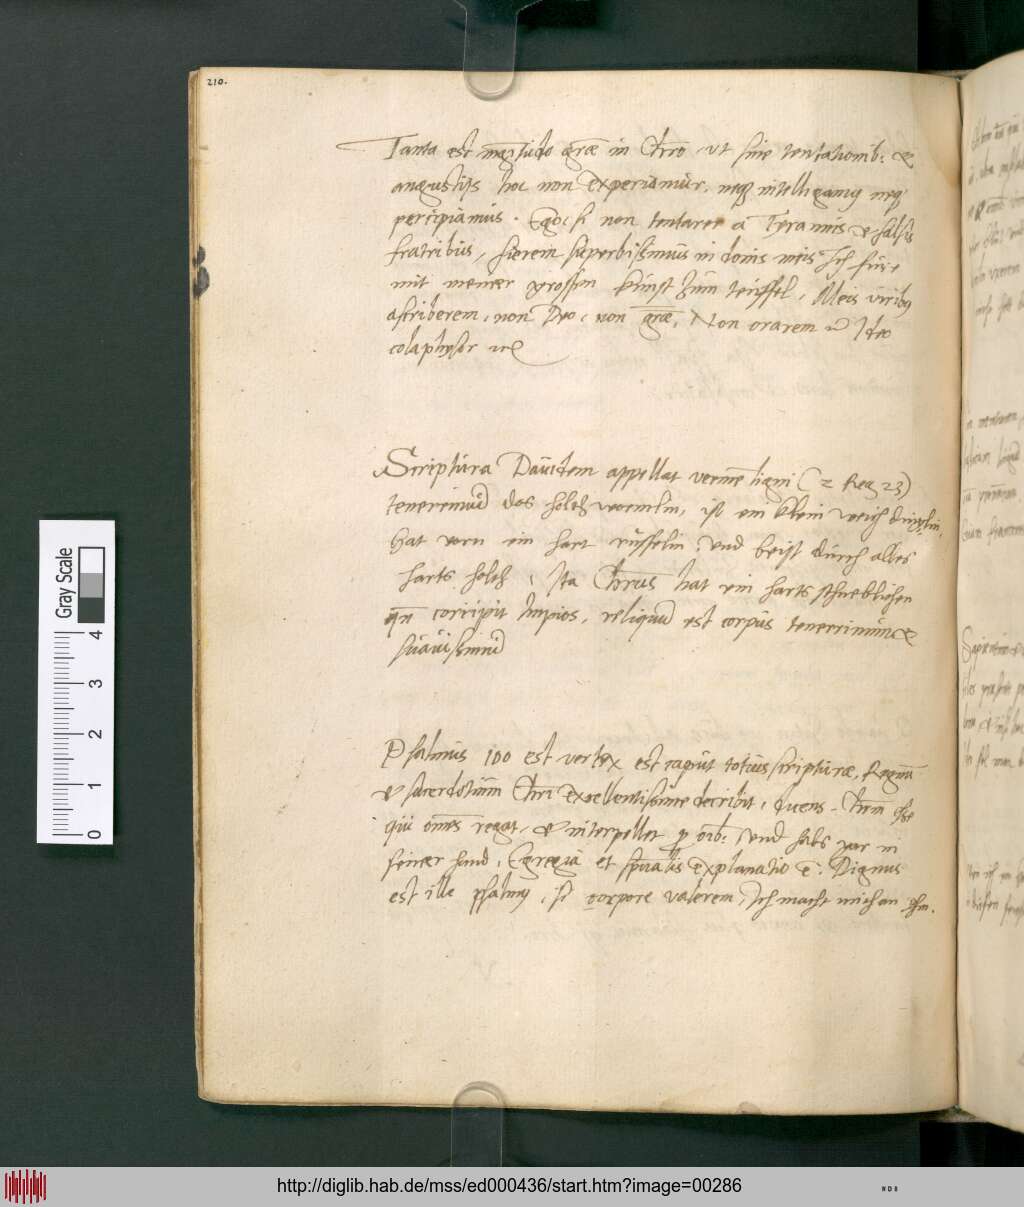 210.
Tanta est magnitudo græ in Chro, ut sine tentationib: &
angustijs hoc non experiamur, neq intelligamus neq
percipiamus. Ego si non tentarer a Tyrannis & falsis
fratribus, fierem superbissimus in donis meis Ich füre
mit meiner grossen kunst zum teuffel, Meis viribus
ascriberem, non Deo, non græ, Non orarem Ideo
colaphisor
Scriptura Dauidem appellat verme ligni (2 Reg 23)
tenerrimu das holtz wormlin, ist ein klein weich dinglin,
hat vorn ein hart russelin, und beist durch alles
harts holtz, Ita Christus hat ein harts schneblichen
qn corripit impios, reliquu est corpus tenerrimum &
suauissimu
Psalmus 100 est vertex est caput totius scripturæ, Regnu
& sacerdotium Chri excellentissime decribit, dicens. Chrm esse
qui omes regat, & interpellet p oib: und habs gar in
seiner hand, Egregia et spualis explanatio e. Dignus
est ille psalmus, si corpore valerem, Ich macht mich an ihn.
Gray Scale
0 1 2 3 4
http://diglib.hab.de/mss/ed000436/start.htm?image=00286